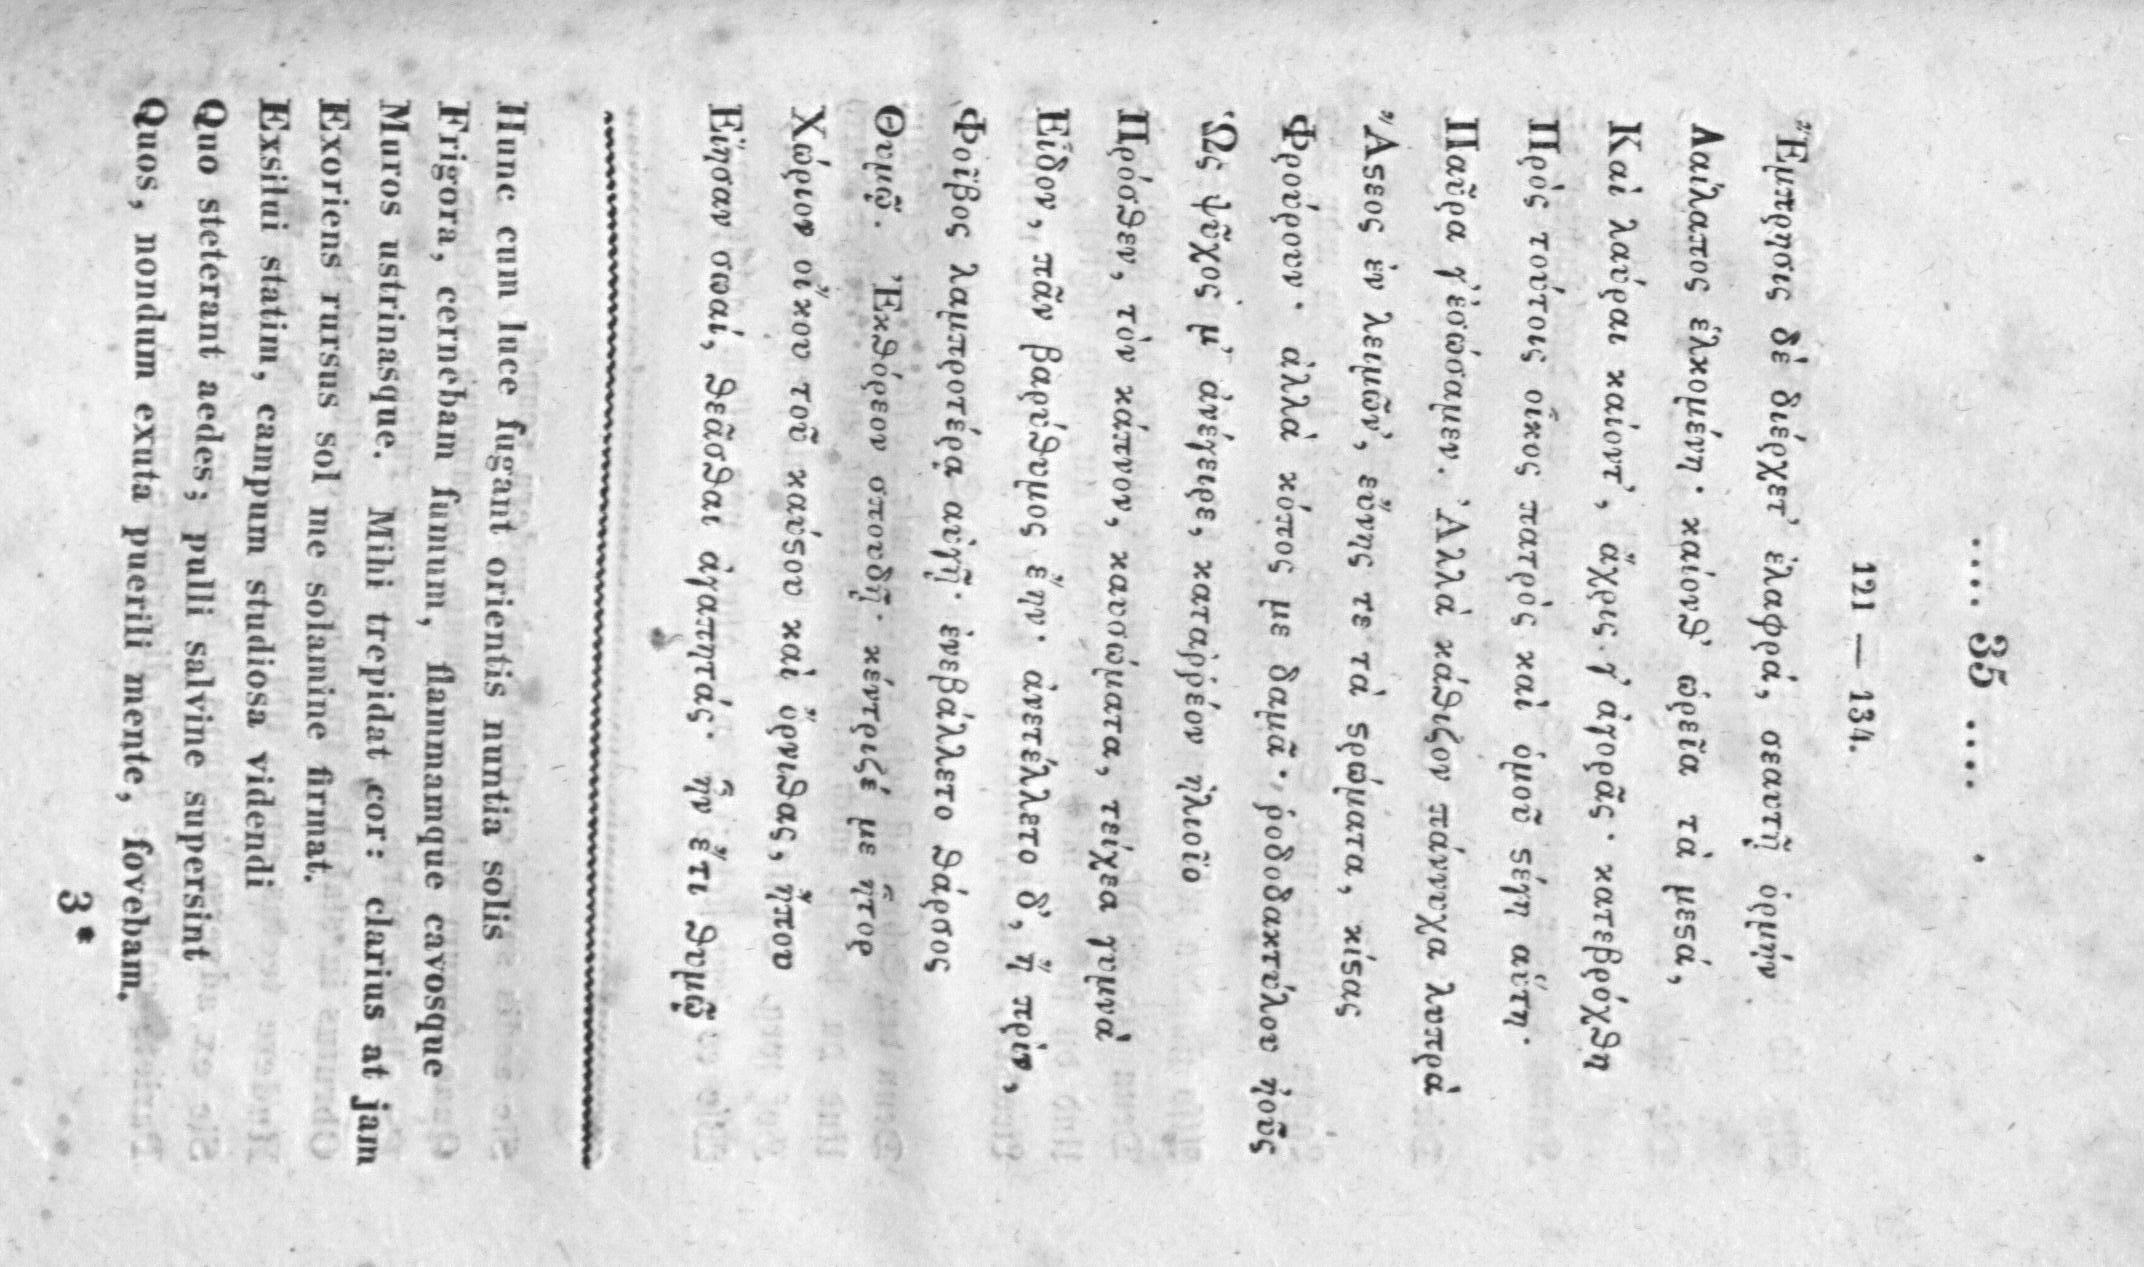 .... 35 ....
121 — 134.
Ἔμπρησις δὲ διέρχετ᾽ ἐλαφρά, σεαυτῇ ὁρμήν
Λαίλαπος ἑλκομένη· καίονθ᾽ ὡρεῖα τὰ μεϛά,
Καὶ λαύραι καίοντ᾽, ἄχρις γ᾽ ἀγορᾶς· κατεβρόχθη
Πρὸς τούτοις οἶκος πατρὸς καὶ ὁμοῦ ϛέγη αὕτη·
Παῦρα γ᾽ ἐσώσαμεν. Ἀλλὰ κάθιζον πάννυχα λυπρὰ
Ἄϛεος ἐν λειμῶν᾽, εὔνης τε τὰ ϛρώματα, κίϛας
Φρούρουν· ἀλλὰ κόπος με δαμᾶ· ῥοδοδακτύλου ἠοῦς
Ὡς ψῦχός μ᾽ ἀνέγειρε, καταῤῥέον ἠλιοῖο
Πρόσθεν, τὸν κάπνον, καυσώματα, τείχεα γυμνὰ
Εἶδον, πᾶν βαρύθυμος ἔην· ἀνετέλλετο δ᾽, ἢ πρίν,
Φοῖβος λαμπροτέρᾳ αὐγῇ· ἐνεβάλλετο θάρσος
Θυμῷ. Ἐκθόρεον σπουδῇ· κέντριζέ με ἦτορ
Χώριον οἴκου τοῦ καύϛου καὶ ὄρνιθας, ἤπου
Εἴησαν σωαί, θεᾶσθαι ἀγαπητάς· ἦν ἔτι θυμῷ
Hunc cum luce fugant orientis nuntia solis
Frigora, cernebam fumum, flammamque cavosque
Muros ustrinasque. Mihi trepidat cor: clarius at jam
Exoriens rursus sol me solamine firmat.
Exsilui statim, campum studiosa videndi
Quo steterant aedes; pulli salvine supersint
Quos, nondum exuta puerili mente, fovebam.
3*